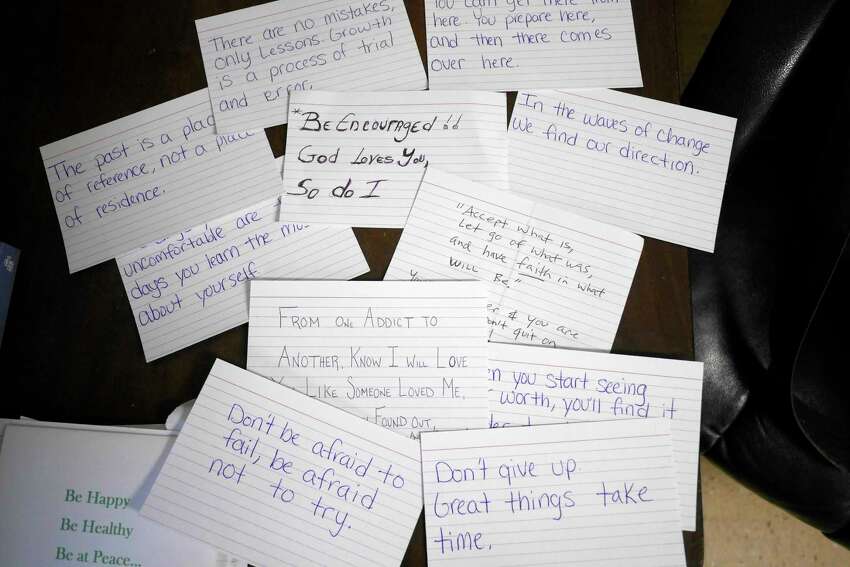 There are no mistakes,
only Lessons. Growth
is a process of trial
and error.
here. You prepare here,
and then there comes
over here.
The past is a place
of reference, not a place
of residence.
*Be Encouraged!!
God Loves You,
So do I
In the waves of change
We find our direction.
uncomfortable are
days you learn the
about yourself
"Accept what is,
Let go of what was,
and have faith in what
will Be."
& you are
quit on
From one Addict to
Another, Know I Will Love
Like Someone Loved Me,
Found out,
you start seeing
worth, you'll find it
Don't be afraid to
fail, be afraid
not to try.
Don't give up.
Great things take
time.
Be Happy
Be Healthy
Be at Peace...